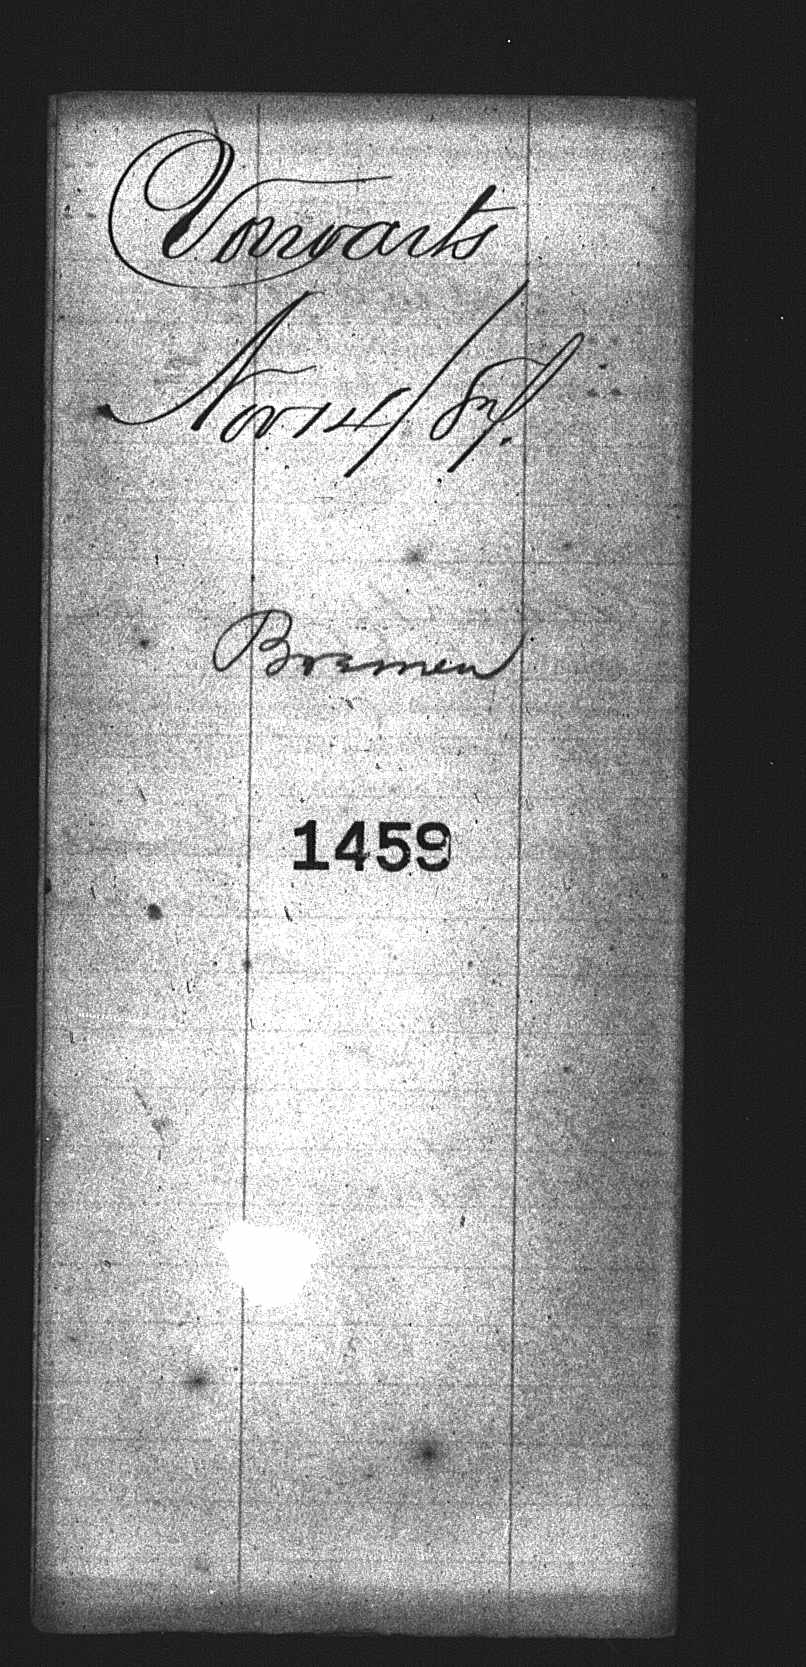 Vorwarts
Nov 14/87.
Bremen
1459